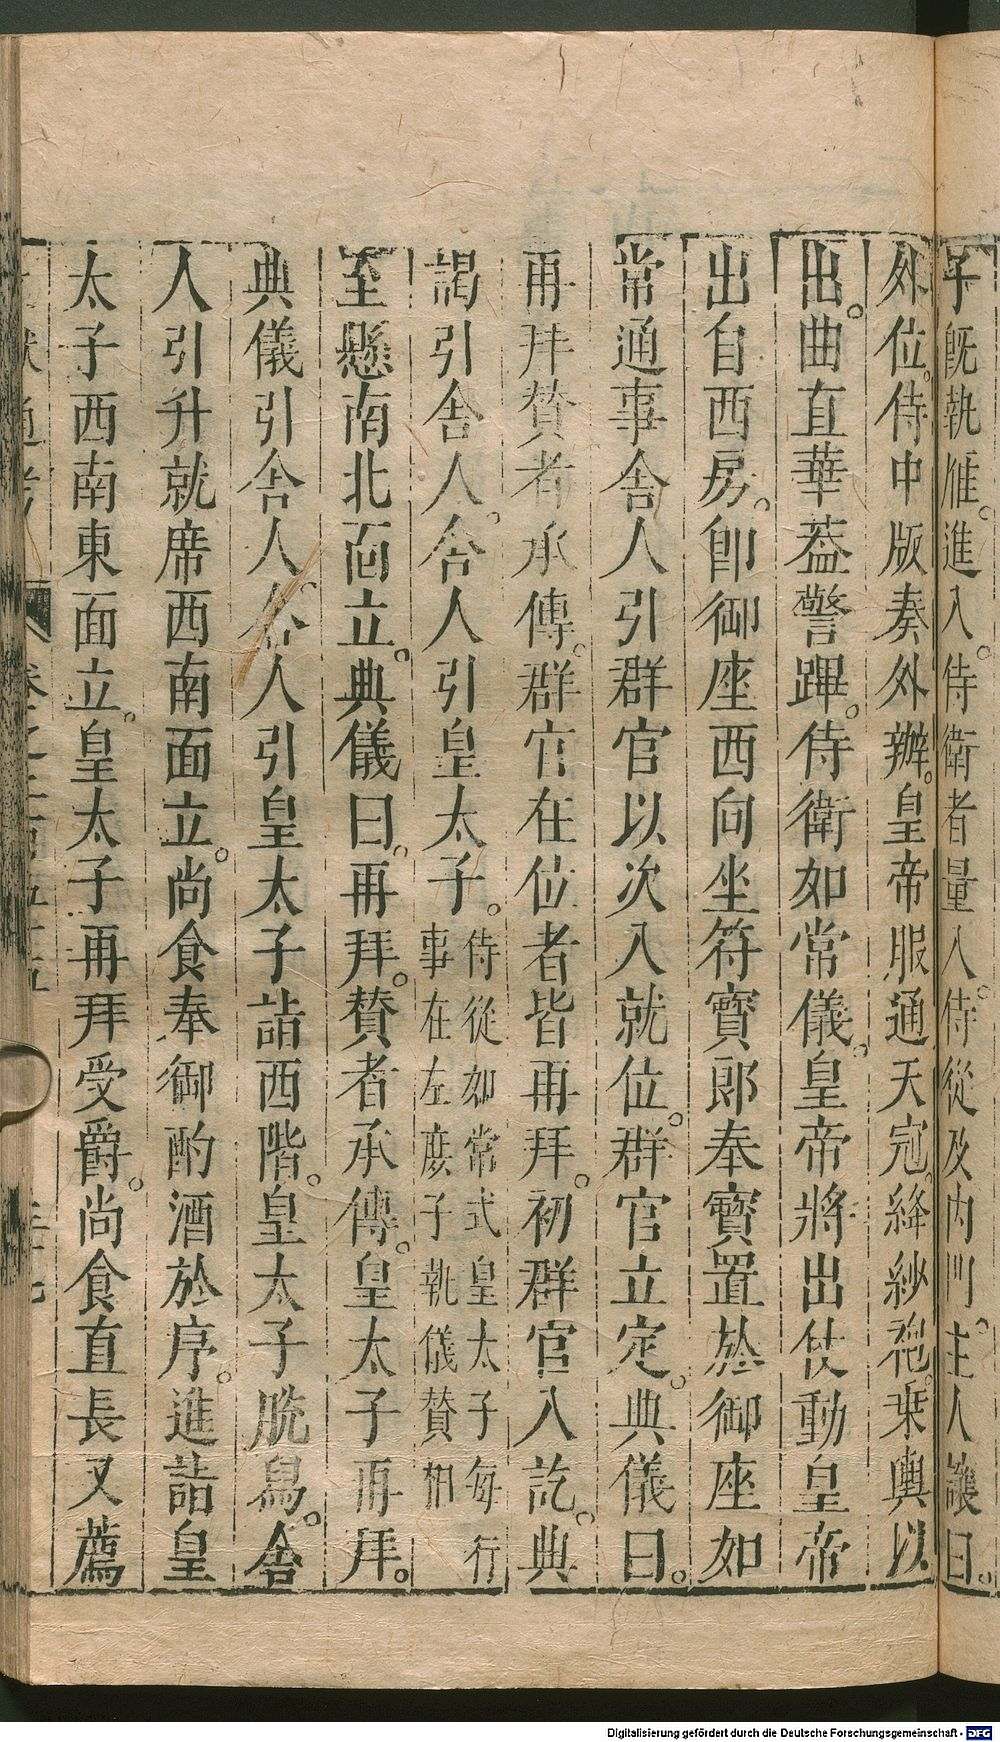 子旣執雁。進入。侍衛者量入。侍從及內門。主人讓曰。
外位。侍中版奏外辦。皇帝服通天冠。絳紗袍。乗輿以
出。曲直華葢警蹕。侍衛如常儀。皇帝將出仗動皇帝
出自西房。卽御座西向坐符寶郎奉寶置於御座如
常通事舎人引群官以次入就位。群官立定。典儀曰。
再拜贊者承傳。群官在位者皆再拜。初群官入訖。典
謁引舎人。舎人引皇太子。侍從如常式皇太子每行事在左庶子執儀贊相
至懸南北靣立。典儀曰。再拜。贊者承傳。皇太子再拜。
典儀引舎人舎人引皇太子詣西階。皇太子脫舄。舎
人引升就席西南面立。尚食奉御酌酒於序。進詣皇
太子西南東面立。皇太子再拜受爵。尚食直長又薦
獻通考 卷之二百五十五
Digitalisierung gefördert durch die Deutsche Forschungsgemeinschaft - DFG